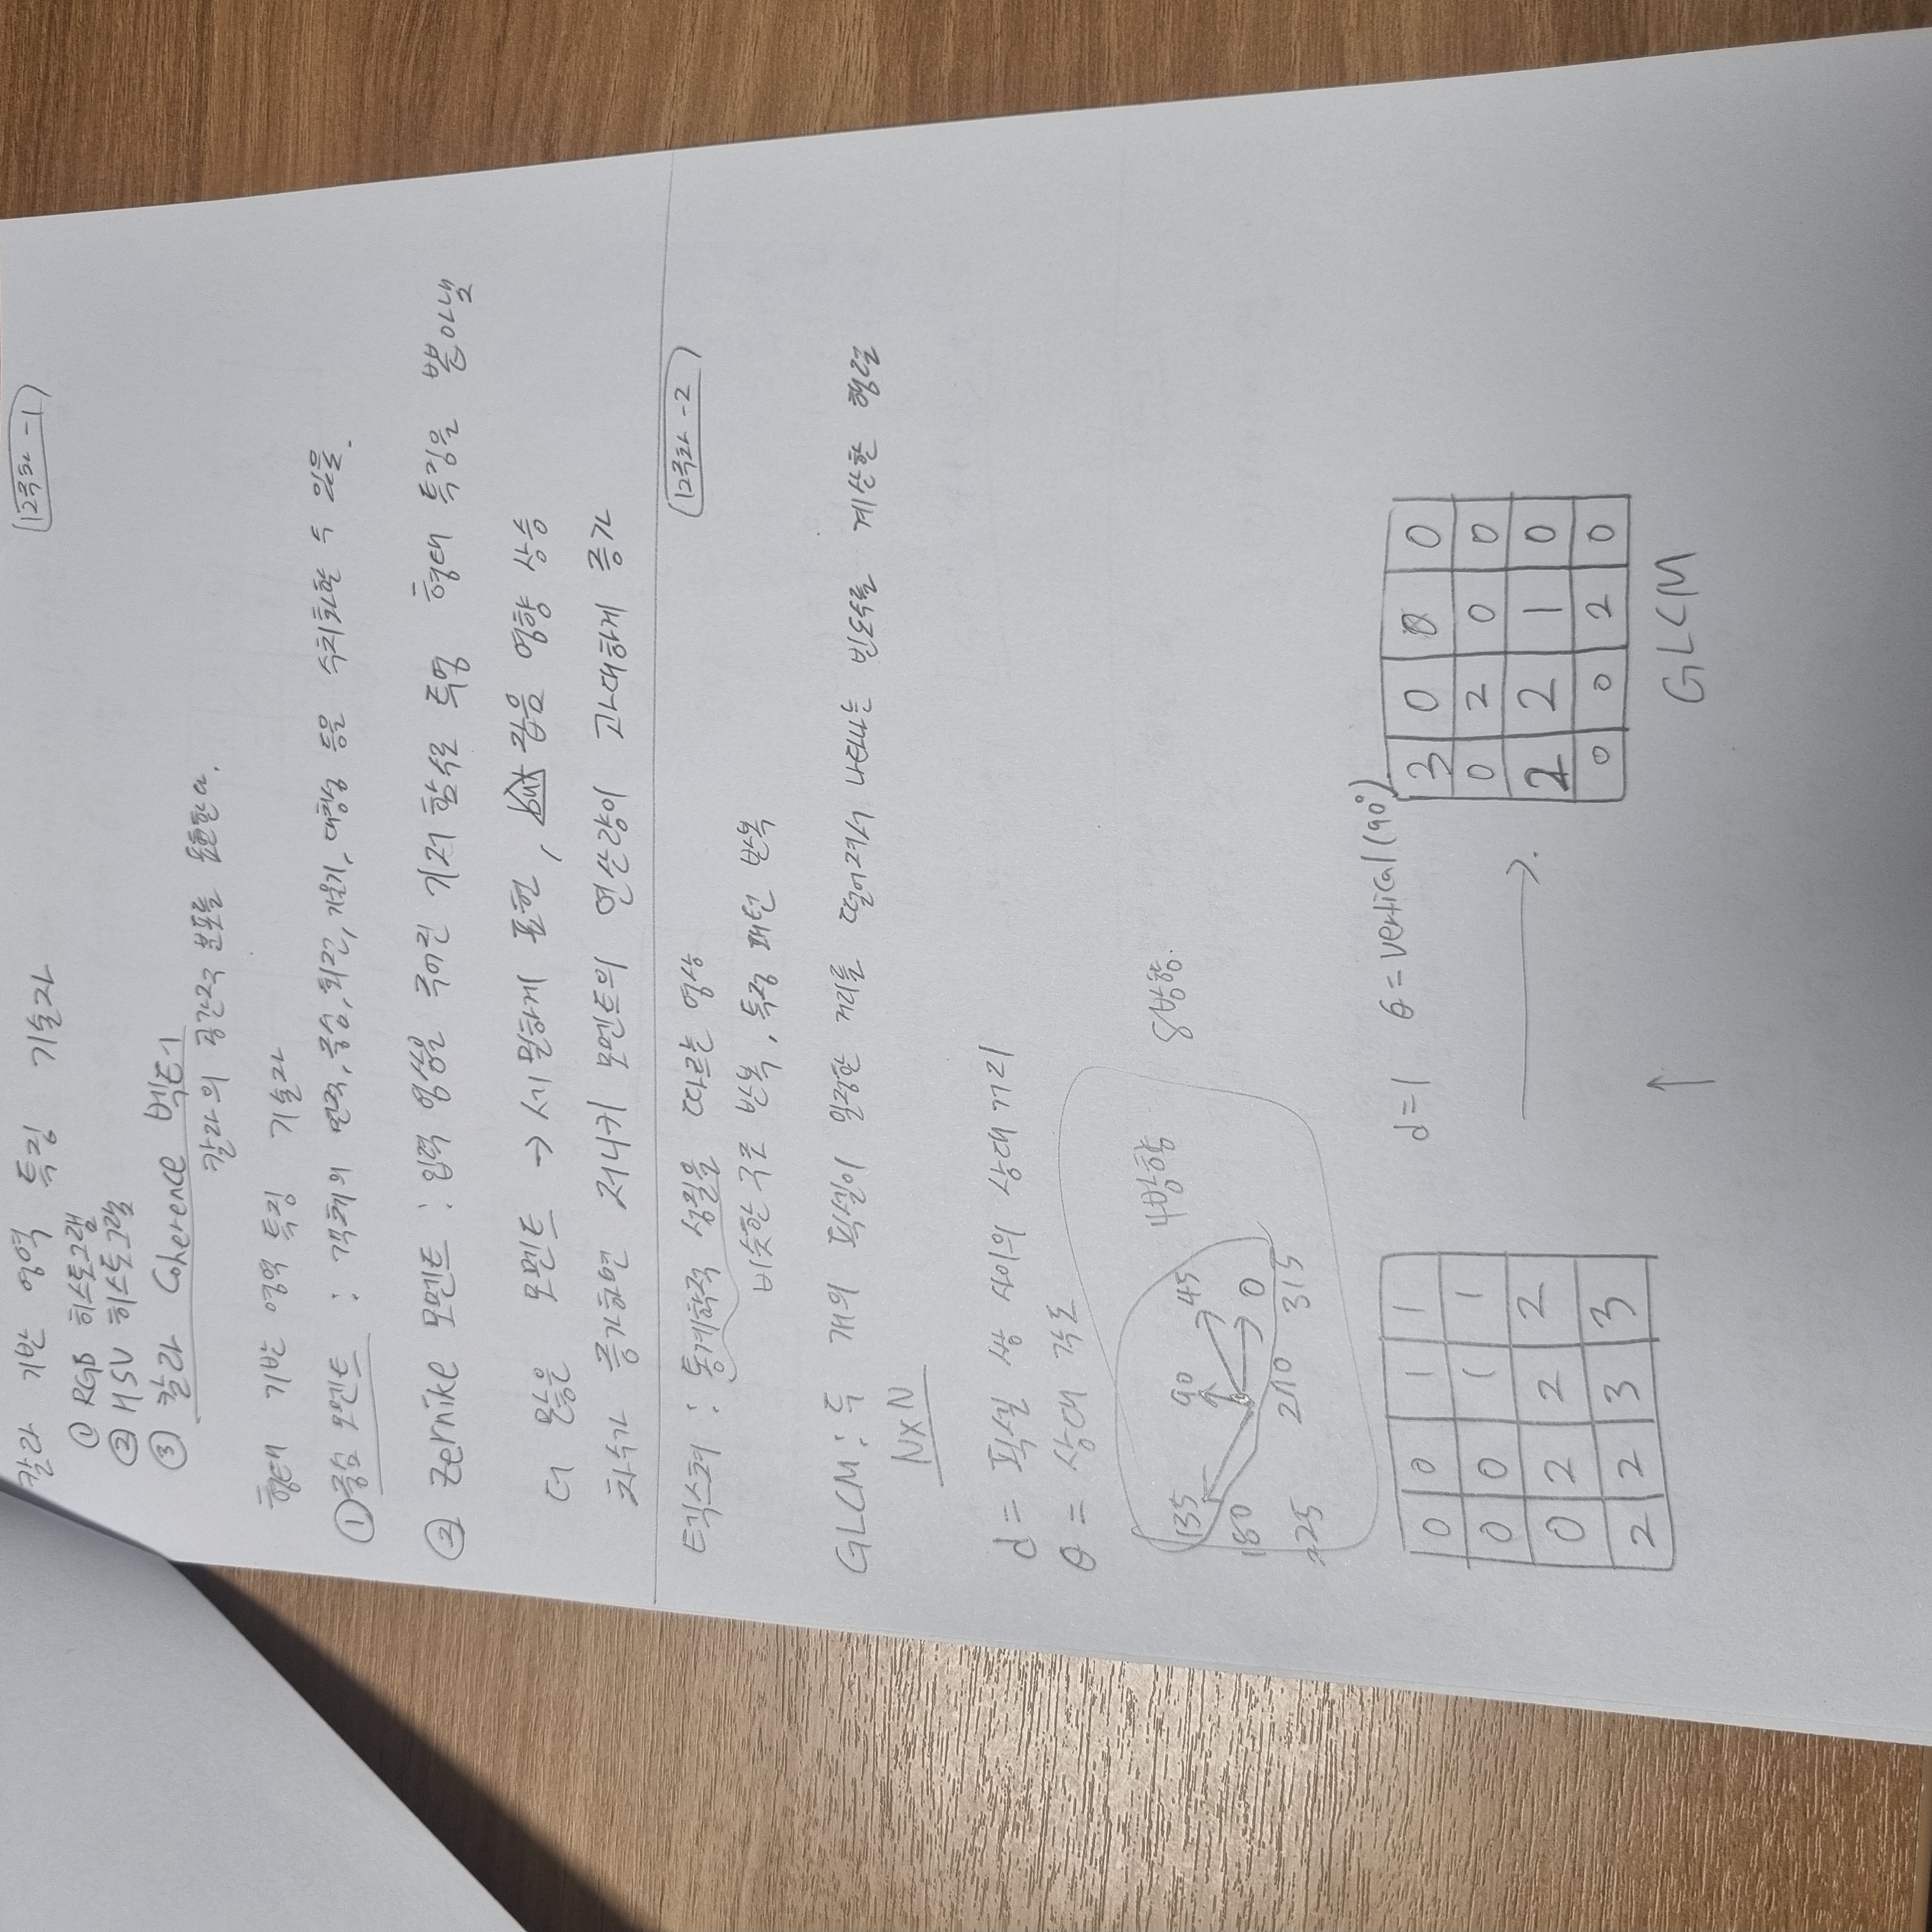 칼라 기반 영역 특징 기술자
12주차 -1
① RGB 히스토그램
② HSV 히스토그램
③ 칼라 Coherence 벡터
칼라의 공간적 분포를 표현한다.
형태 기반 영역 특징 기술자
① 중심 모멘트 : 객체의 면적, 중심, 회전, 기울기, 대칭성 등을 수치화할 수 있음.
② Zernike 모멘트 : 입력 영상을 주어진 기저 함수로 투영 형태 특징을 뽑아냄
더 많은 모멘트 → 세밀하게 표현, but 잡음 영향 상승
차수가 증가하면 저니키 모멘트의 연산량이 과대하게 증가
12주차 -2
텍스쳐 : 통계학적 성질을 따르는 영상
비슷한 구조 반복, 특정 패턴 반복
GLCM : 두 개의 픽셀이 일정한 거리를 떨어져서 나타나는 빈도수를 계산한 행렬
NxN
d = 픽셀 쌍 사이의 상대 거리
θ = 상대 각도
4방향 8방향.
135 90 45
180 0
225 270 315
d=1 θ = vertical (90°)
0 0 1 1
0 0 1 1
0 2 2 2
2 2 3 3
3 0 0 0
0 2 0 0
2 2 1 0
0 0 2 0
GLCM